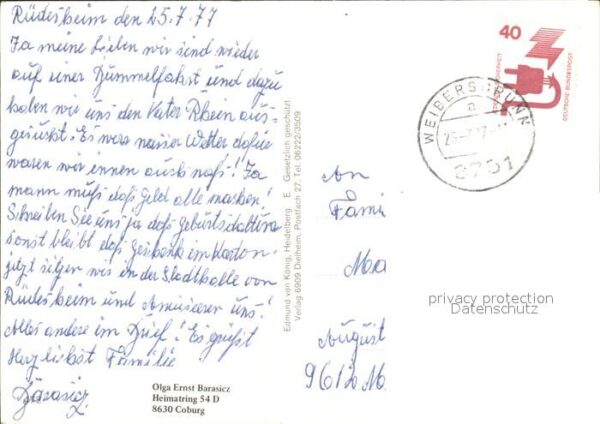 Rüdesheim den 25.7.77
Ja meine Lieben wir sind wieder
auf einer Bummelfahrt und dazu
haben wir uns den Vater Rhein aus-
gesucht. Es wars nasser Wetter dafür
waren wir innen auch naß! Ja
mann muß daß Geld alle machen!
Schreiben Sie uns ja daß Geburtsdatum
sonst bleibt daß Geschenk im Karton.
jetzt sitzen wir in der Stadthalle von
Rüdesheim und Amüsieren uns!
Alles andere im Brief! Es grüßt
Herzlichst Familie
Barasicz
Olga Ernst Barasicz
Heimatring 54 D
8630 Coburg
Edmund von König, Heidelberg E Gesetzlich geschützt
Verlag 6909 Dielheim, Postfach 27, Tel. 06222/3509
40
DEUTSCHE BUNDESPOST
WEIBERSBRUNN
a
8751
An
Fami
Ma
August
privacy protection
Datenschutz